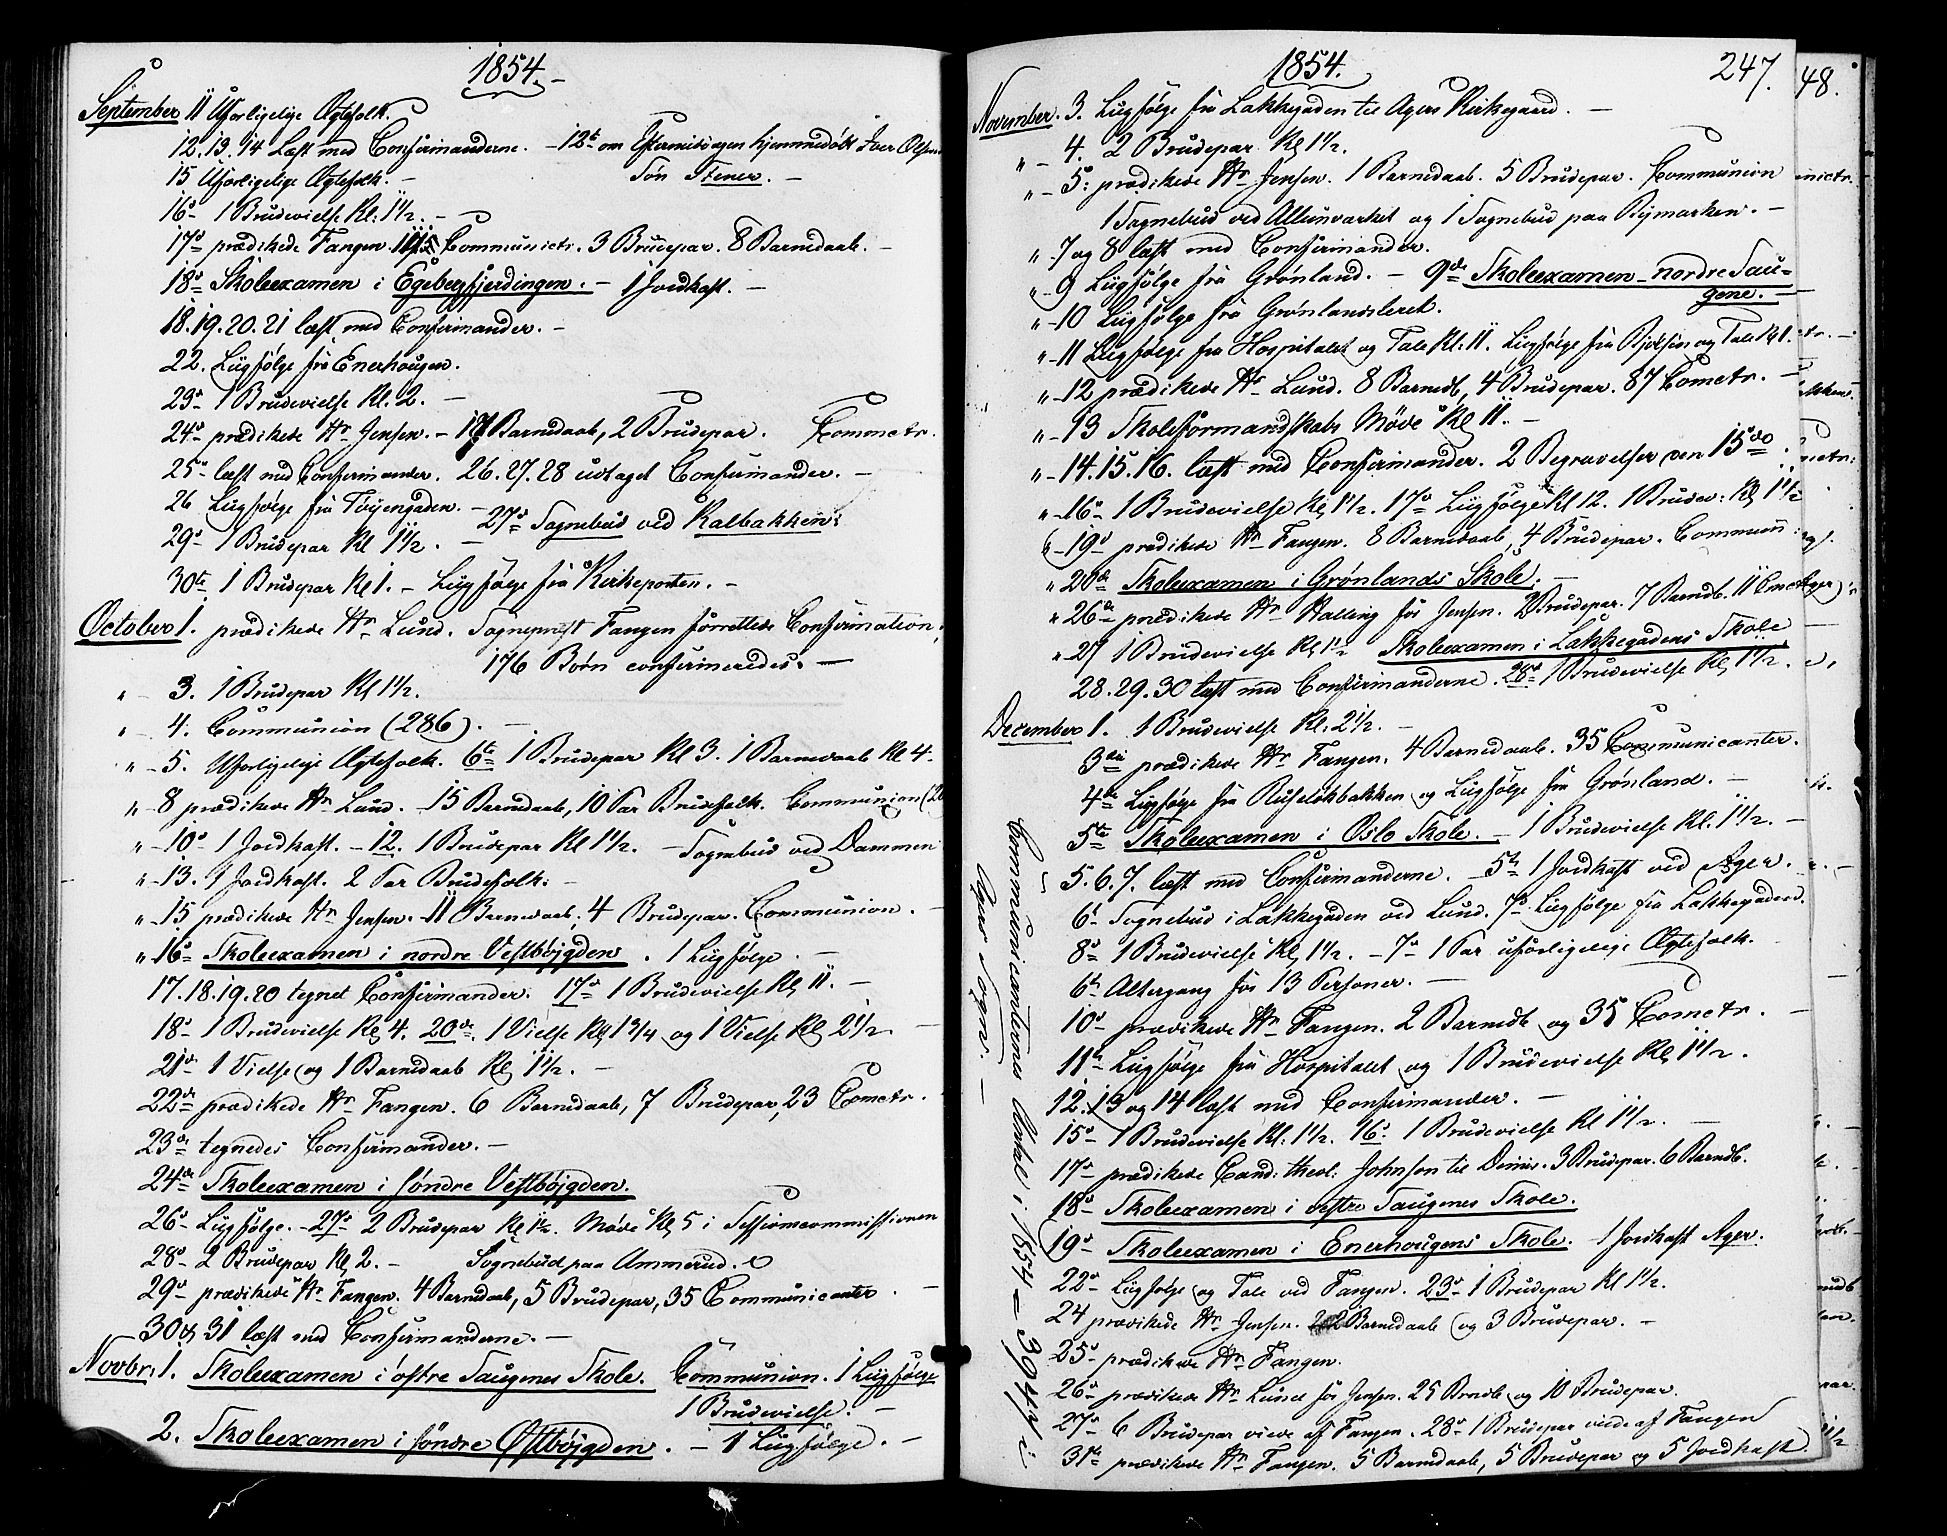 1854.
September 11 Uforligelige Ægtefolk.
12. 13. 14 Læst med Confirmanderne. - 12te om Eftermiddagen hjemmedøbt Iver Olsens
Søn Stener. -
15 Uforligelige Ægtefolk. -
16de 1 Brudevielse Kl: 1½. -
17de prædikede Fangen. Communictr. 3 Brudepar. 8 Barnedaab. -
18de Skoleexamen i Egebergfjerdingen. - 1 Jordkast. -
18. 19. 20. 21 læst med Confirmander. -
22. Liigfølge frå Enerhougen.
23de 1 Brudevielse Kl. 2. -
24de prædikede Hr Jensen. - 17 Barnedaab, 2 Brudepar. Commctr.
25de læst med Confirmander. 26. 27. 28 udtaget Confirmander. -
26 Liigfølge frå Tøyengaden. -
27de Sognebud ved Kalbakken.
29de 1 Brudepar Kl 1½. -
30te 1 Brudepar Kl 1. - Liigfølge frå Kirkeporten. -
October 1. prædikede Hr Lund. Sogneprest Fangen forrettede Confirmation,
176 Børn confirmeredes. -
" - 3. 1 Brudepar Kl 1½.
" - 4. Communion (286). -
" - 5. Uforligelige Ægtefolk. 6te 1 Brudepar Kl 3. 1 Barnedaab Kl 4.
" - 8 prædikede Hr Lund. - 15 Barnedaab, 10 Par Brudefolk. Communion
" - 10de 1 Jordkast. - 12. 1 Brudepar Kl 1½. - Sognebud ved Dammen
" - 13. 1 Jordkast. 2 Par Brudefolk. -
" - 15 prædikede Hr Jensen. - 11 Barnedaab, 4 Brudepar. Communion. -
" - 16de Skoleexamen i nordre Vestbøjgden. 1 Liigfølge. -
17. 18. 19. 20 tegnet Confirmander. 17de 1 Brudevielse Kl 11. -
18de 1 Brudevielse Kl 4. 20de. 1 Vielse Kl 1 3/4 og 1 Vielse Kl 2½ -
21de 1 Vielse og 1 Barnedaab Kl 1½. -
22de prædikede Hr Fangen. 6 Barnedaab, 7 Brudepar, 23 Comctr.
23de tegnedes Confirmander. -
24de Skoleexamen i søndre Vestbøjgden.
26de Liigfølge. - 27de 2 Brudepar Kl 1½. Møde Kl 5 i Sessionscommissionen
28de 2 Brudepar Kl 2. - Sognebud paa Ammerud.
29de prædikede Hr Fangen. 4 Barnedaab, 5 Brudepar, 35 Communicanter. -
30 & 31 læst med Confirmanderne. -
Novbr. 1. Skoleexamen i østre Laugenes Skole. Communion. 1 Liigfølge
1 Brudevielse. -
2. Skoleexamen i søndre Østbøjgden. - 1 Liigfølge. -
1854. 247.
48.
November. 3. Liigfølge frå Lakkegaden til Agers Kirkegaard. -
" - 4. 2 Brudepar Kl 1½.
" - 5: prædikede Hr Jensen. 1 Barnedaab. 5 Brudepar. Communion
1 Sognebud ved Allunværket og 1 Sognebud paa Bymarken. -
" - 7 og 8 læst med Confirmander.
" - 9 Liigfølge frå Grønland. - 9de Skoleexamen - nordre Lau-
gene. -
" - 10 Liigfølge frå Grønlandsleret.
" - 11 Liigfølge fra Hospitalet og Tale Kl: 11. Liigfølge frå Bjølsen og Tale Kl 1.
" - 12 prædikede Hr Lund. 8 Barnedb, 4 Brudepar. 87 Comctr. -
" - 13 Skoleformandskabs Møde Kl 11. -
" - 14. 15. 16. læst med Confirmander. 2 Begravelser den 15de.
" - 16de 1 Brudevielse Kl 1½. 17de Liigfølge Kl 12. 1 Brudev: Kl 1½
" - 19de prædikede Hr Fangen. 8 Barnedaab, 4 Brudepar. Commun:
" 20de Skoleexamen i Grønlands Skole. -
" 26de prædikede Hr Halling for Jensen. 2 Brudepar. 7 Barndb. 11 Comct Ager)
" - 27 1 Brudevielse Kl 1½ Skoleexamen i Lakkegadens Skole -
28. 29. 30 læst med Confirmanderne. 28de 1 Brudevielse Kl 1½.
December 1. 1 Brudevielse Kl: 2½. -
3die prædikede Hr Fangen. 4 Barnedaab. 35 Communicanter.
4de Liigfølge frå Ruseløkbakken og Liigfølge frå Grønland. -
5te Skoleexamen i Oslo Skole. - 1 Brudevielse Kl. 1½. -
5. 6. 7. læst med Confirmanderne. - 5te 1 Jordkast ved Ager. -
6te Sognebud i Lakkegaden ved Lund. 7de Liigfølge fra Lakkegaden.
8de 1 Brudevielse Kl 1½. - 7de 1 Par uforligelige Ægtefolk.
6te Altergang for 13 Personer. -
10de prædikede Hr Fangen. 2 Barnedb og 35 Comctr. -
11te Liigfølge frå Hospitalet og 1 Brudevielse Kl 1½.
12. 13 og 14 læst med Confirmander. -
15de 1 Brudevielse Kl: 1½. 16de 1 Brudevielse Kl 1½. -
17de prædikede Cand: theol: Johnson til Dimis. 3 Brudepar. 6 Barndb.
18de Skoleexamen i vestre Laugenes Skole.
19de Skoleexamen i Enerhougens Skole. - 1 Jordkast Ager.
22de Liigfølge og Tale ved Fangen. 23de 1 Brudepar Kl 1½.
24 prædikede Hr Jensen. 2 Barnedaab og 3 Brudepar. -
25de prædikede Hr Fangen.
26de prædikede Hr Lund for Jensen. 25 Brndb og 10 Brudepar.
27de 6 Brudepar viede af Fangen. 28de 1 Brudepar viede af Fangen
31te prædikede Hr Fangen. 5 Barnedaab, 5 Brudepar og 5 Jordkast.
Communicanternes Antal i 1854 = 3944 i
Agers Sogn. -